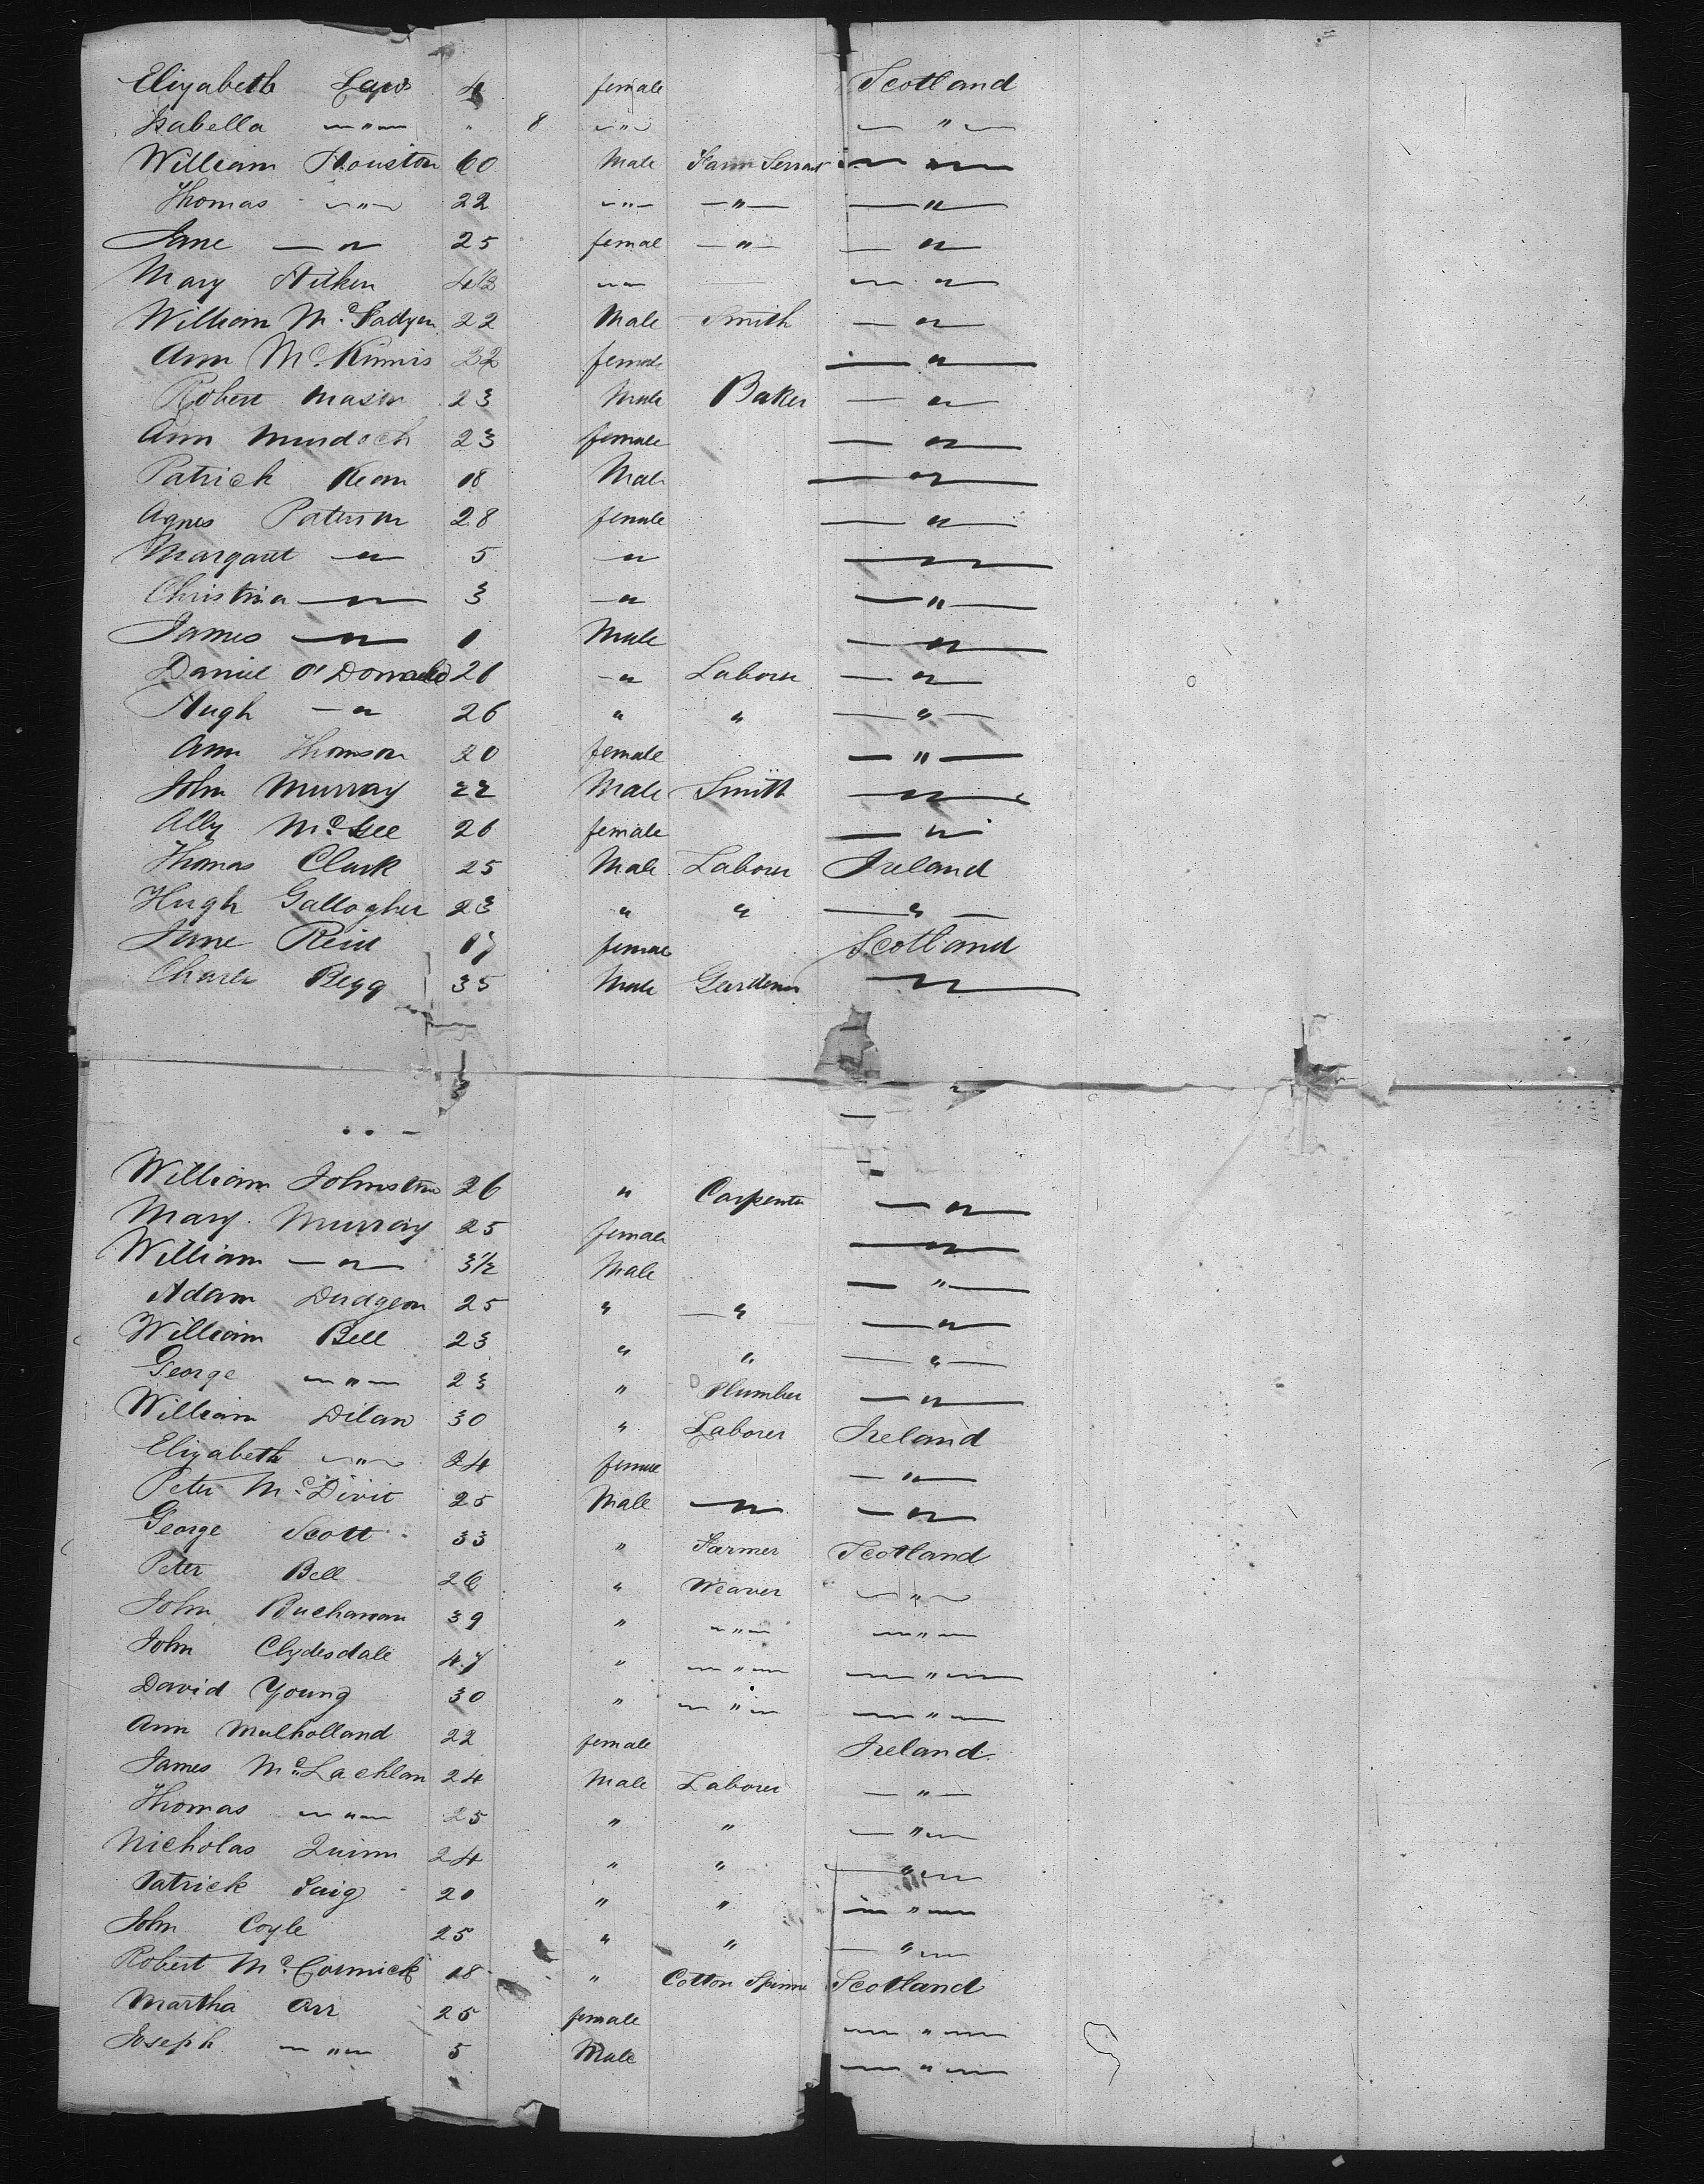 Elizabeth Law 4 female Scotland
Isabella " " 8 " "
William Houston 60 Male Farm Servant "
Thomas " 22 " " "
Jane " 25 femal " "
Mary Aitken " "
William Mc Fadyen 22 Male Smith "
Ann Mc Kinnis 22 female "
Robert Mason 23 Male Baker "
Ann Murdoch 23 female "
Patrick Kean 18 Male "
Agnes Paterson 28 female "
Margaret " 5 " "
Christina " 3 " "
James " 1 Male "
Daniel O'Donnald 21 " Laborer "
Hugh " 26 " " "
Ann Thomson 20 female "
John Murray 22 Male Smith "
Ally McGee 26 female "
Thomas Clark 25 Male Laborer Ireland
Hugh Gallagher 23 " " "
Jane Reid 17 female Scotland
Charles Begg 35 Male Gardener "
William Johnston 26 " Carpenter "
Mary Murray 25 female "
William " 3½ Male "
Adam Dudgeon 25 " " "
William Bell 23 " " "
George " 23 " Plumber "
William Dilan 30 " Laborer Ireland
Elizabeth " 24 female "
Peter McDivit 25 Male " "
George Scott 33 " Farmer Scotland
Peter Bell 26 " Weaver "
John Buchanan 39 " " "
John Clydesdale 47 " " "
David Young 30 " " "
Ann Mulholland 22 female Ireland
James McLachlan 24 Male Laborer "
Thomas " 25 " " "
Nicholas Quinn 24 " " "
Patrick 20 " " "
John Coyle 25 " " "
Robert McCormick 18 " Cotton Spinner Scotland
Martha Orr 25 female "
Joseph " 5 Male "